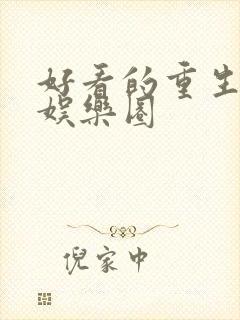 好看的重生
娱樂圈
倪家中